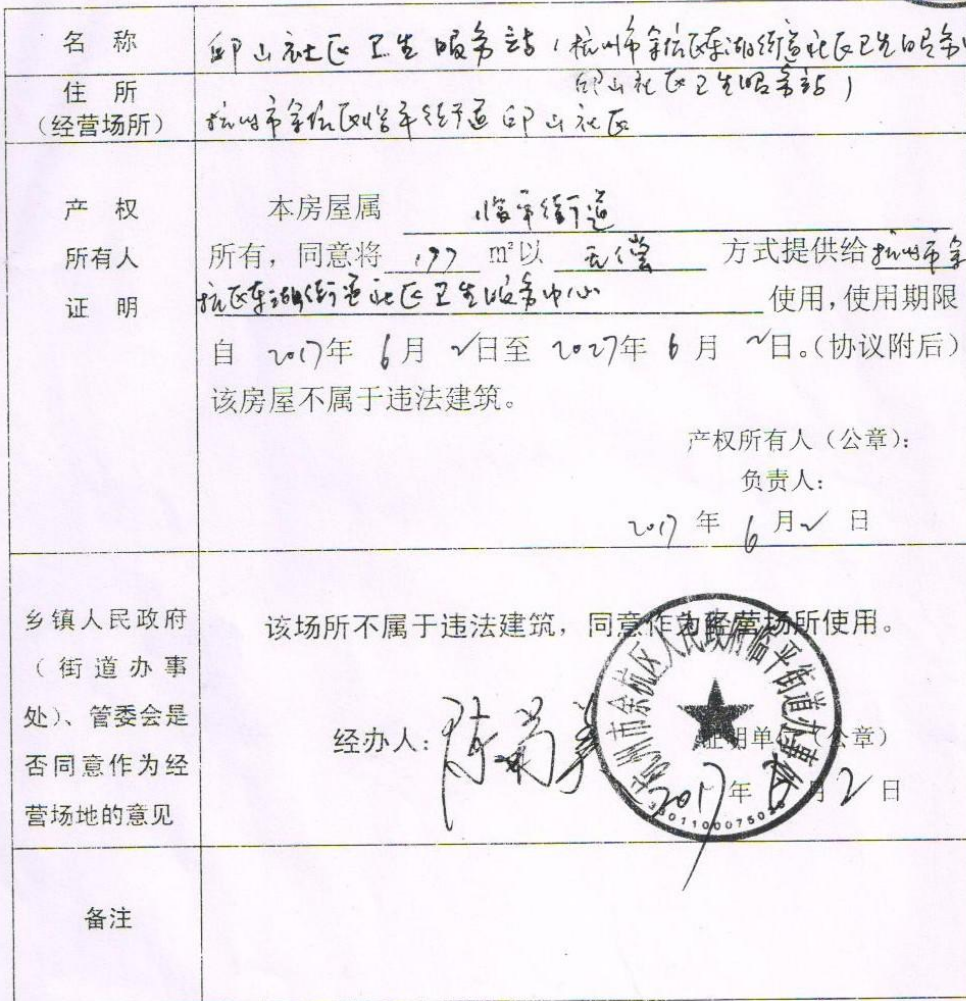 名 称
邱山社区卫生服务站(杭州市余杭区东湖街道社区卫生服务
邱山社区卫生服务站)
住 所
(经营场所)
杭州市余杭区临平街道邱山社区
产 权
所有人
证 明
本房屋属 临平街道
所有,同意将 197 m²以 无偿 方式提供给杭州市余
杭区东湖街道社区卫生服务中心 使用,使用期限
自 2017年 6月 2日至 2027年 6月 2日。(协议附后)
该房屋不属于违法建筑。
产权所有人(公章):
负责人:
2017 年 6 月2 日
乡镇人民政府
(街道办事
处)、管委会是
否同意作为经
营场地的意见
该场所不属于违法建筑,同意作为经营场所使用。
杭州市余杭区人民政府临平街道办事处
经办人:
证明单位(公章)
2017年 6月2日
备注